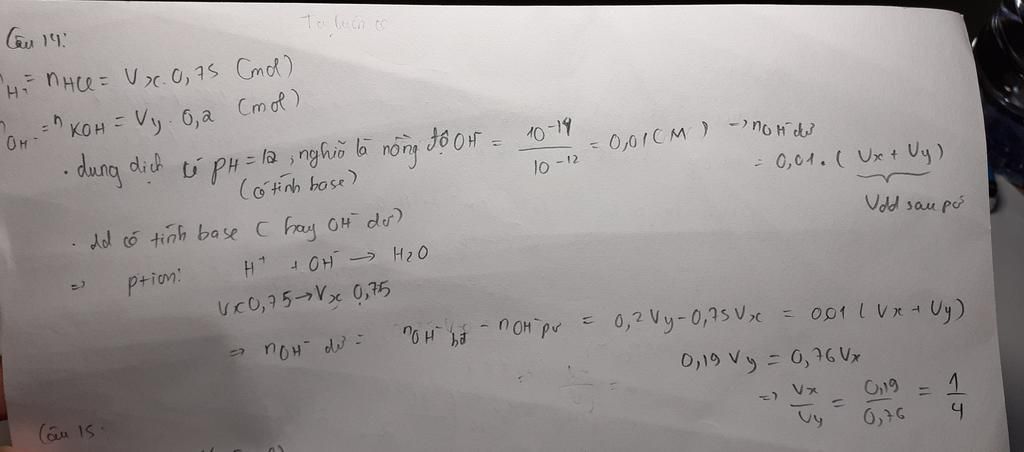 Câu 14:
n H+ = nHCl = Vx. 0,75 (mol)
n OH- = n KOH = Vy. 0,2 (mol)
. dung dịch có pH = 12, nghĩa là nồng độ OH- = 10^-14 / 10^-12 = 0,01 (M) → nOH- dư
(có tính base)
= 0,01. (Vx + Vy)
Vdd sau pứ
. dd có tính base (hay OH- dư)
=> ption: H+ + OH- → H2O
Vx0,75 → Vx 0,75
=> nOH- dư = nOH- bđ - nOH- pứ = 0,2Vy - 0,75Vx = 0,01 (Vx + Vy)
0,19 Vy = 0,76Vx
=> Vx/Vy = 0,19/0,76 = 1/4
Câu 15.